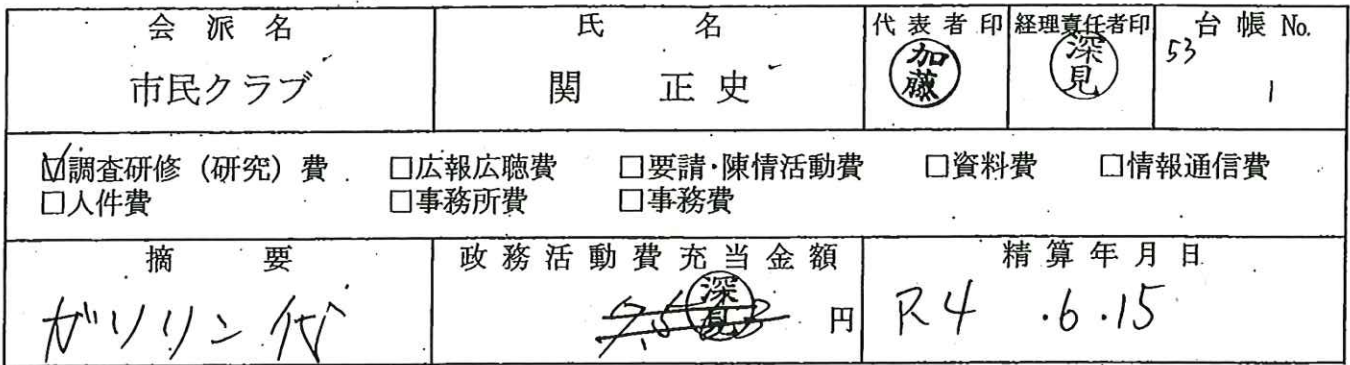 会派名 氏名 代表者印 経理責任者印 台帳 No.
市民クラブ 関 正史 加藤 深見 53 1
☑調査研修（研究）費 □広報広聴費 □要請・陳情活動費 □資料費 □情報通信費
□人件費 □事務所費 □事務費
摘要 政務活動費充当金額 精算年月日
ガソリン代 深見 円 R4.6.15